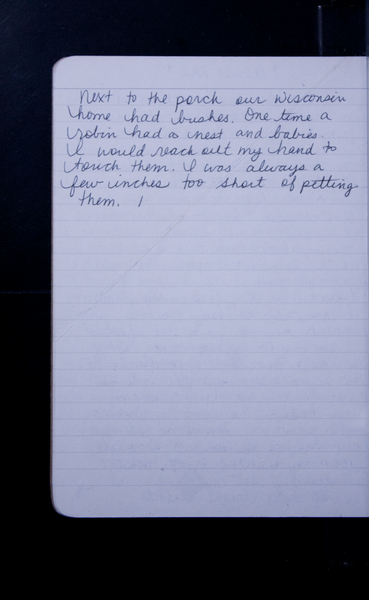 Next to the porch our Wisconsin
home had bushes. One time a
robin had a nest and babies.
I would reach out my hand to
touch them. I was always a
few inches too short of petting
them.